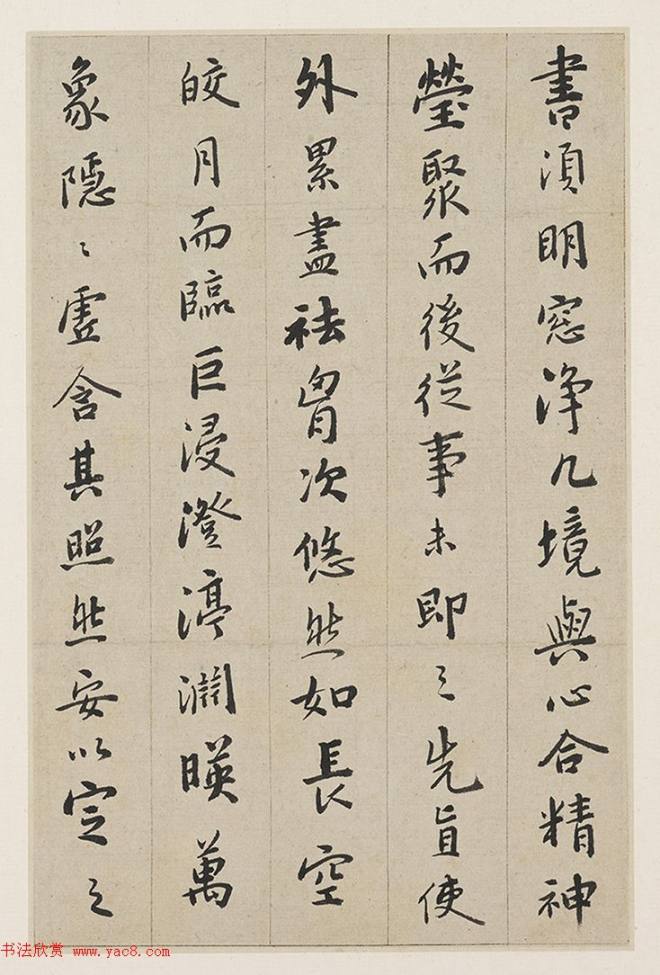 書須明窓淨几境與心合精神
瑩聚而後從事未即之先冝使
外累盡祛胷次悠然如長空
皎月而臨巨浸澄渟澗暎萬
象隱〻虛含其照然安以定之
书法欣赏 www.yac8.com